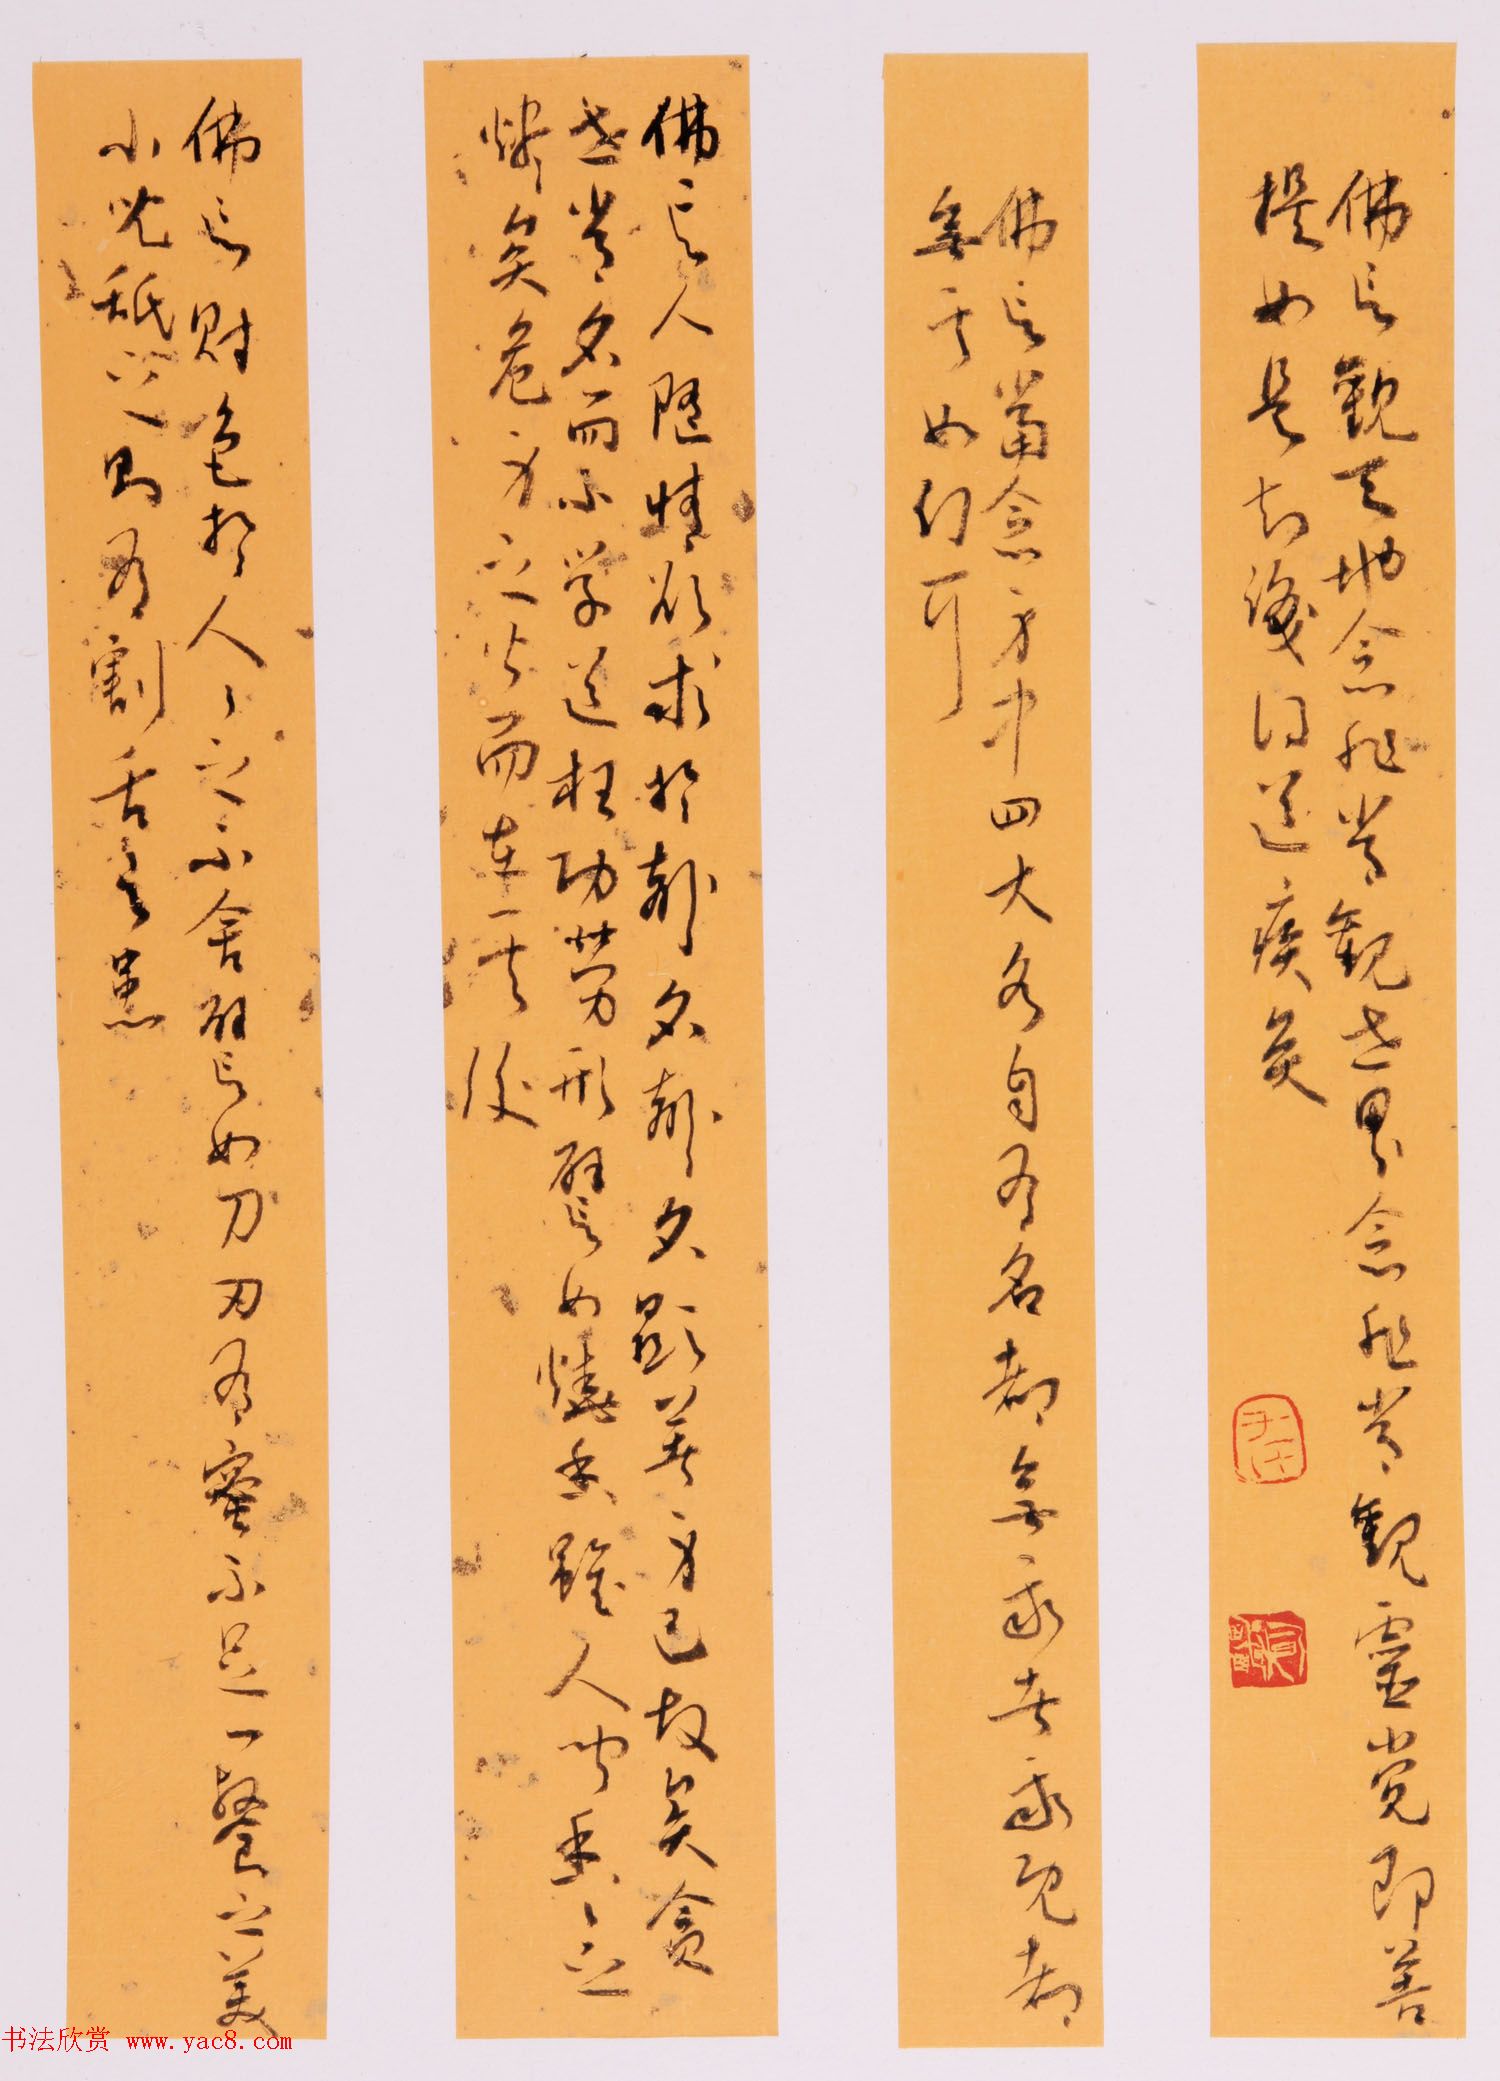 佛言觀天地念非常觀世界念非常觀靈覺即菩
提如是知識得道疾矣
佛言當念身中四大各自有名都無我者我既都
無其如幻耳
佛言人隨情欲求於聲名聲名顯著身已故矣貪
世常名而不学道枉功勞形譬如燒香雖人聞香々之
燼矣危身之火而在其後
佛言財色於人々之不舍譬如刀刃有蜜不足一餐之美
小兒舐之則有割舌之患
书法欣赏 www.yac8.com